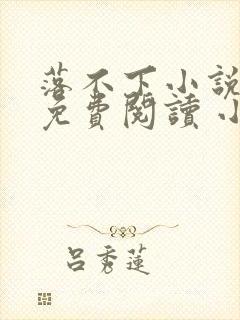 落不下小說
免費閱讀 小
呂秀蓮